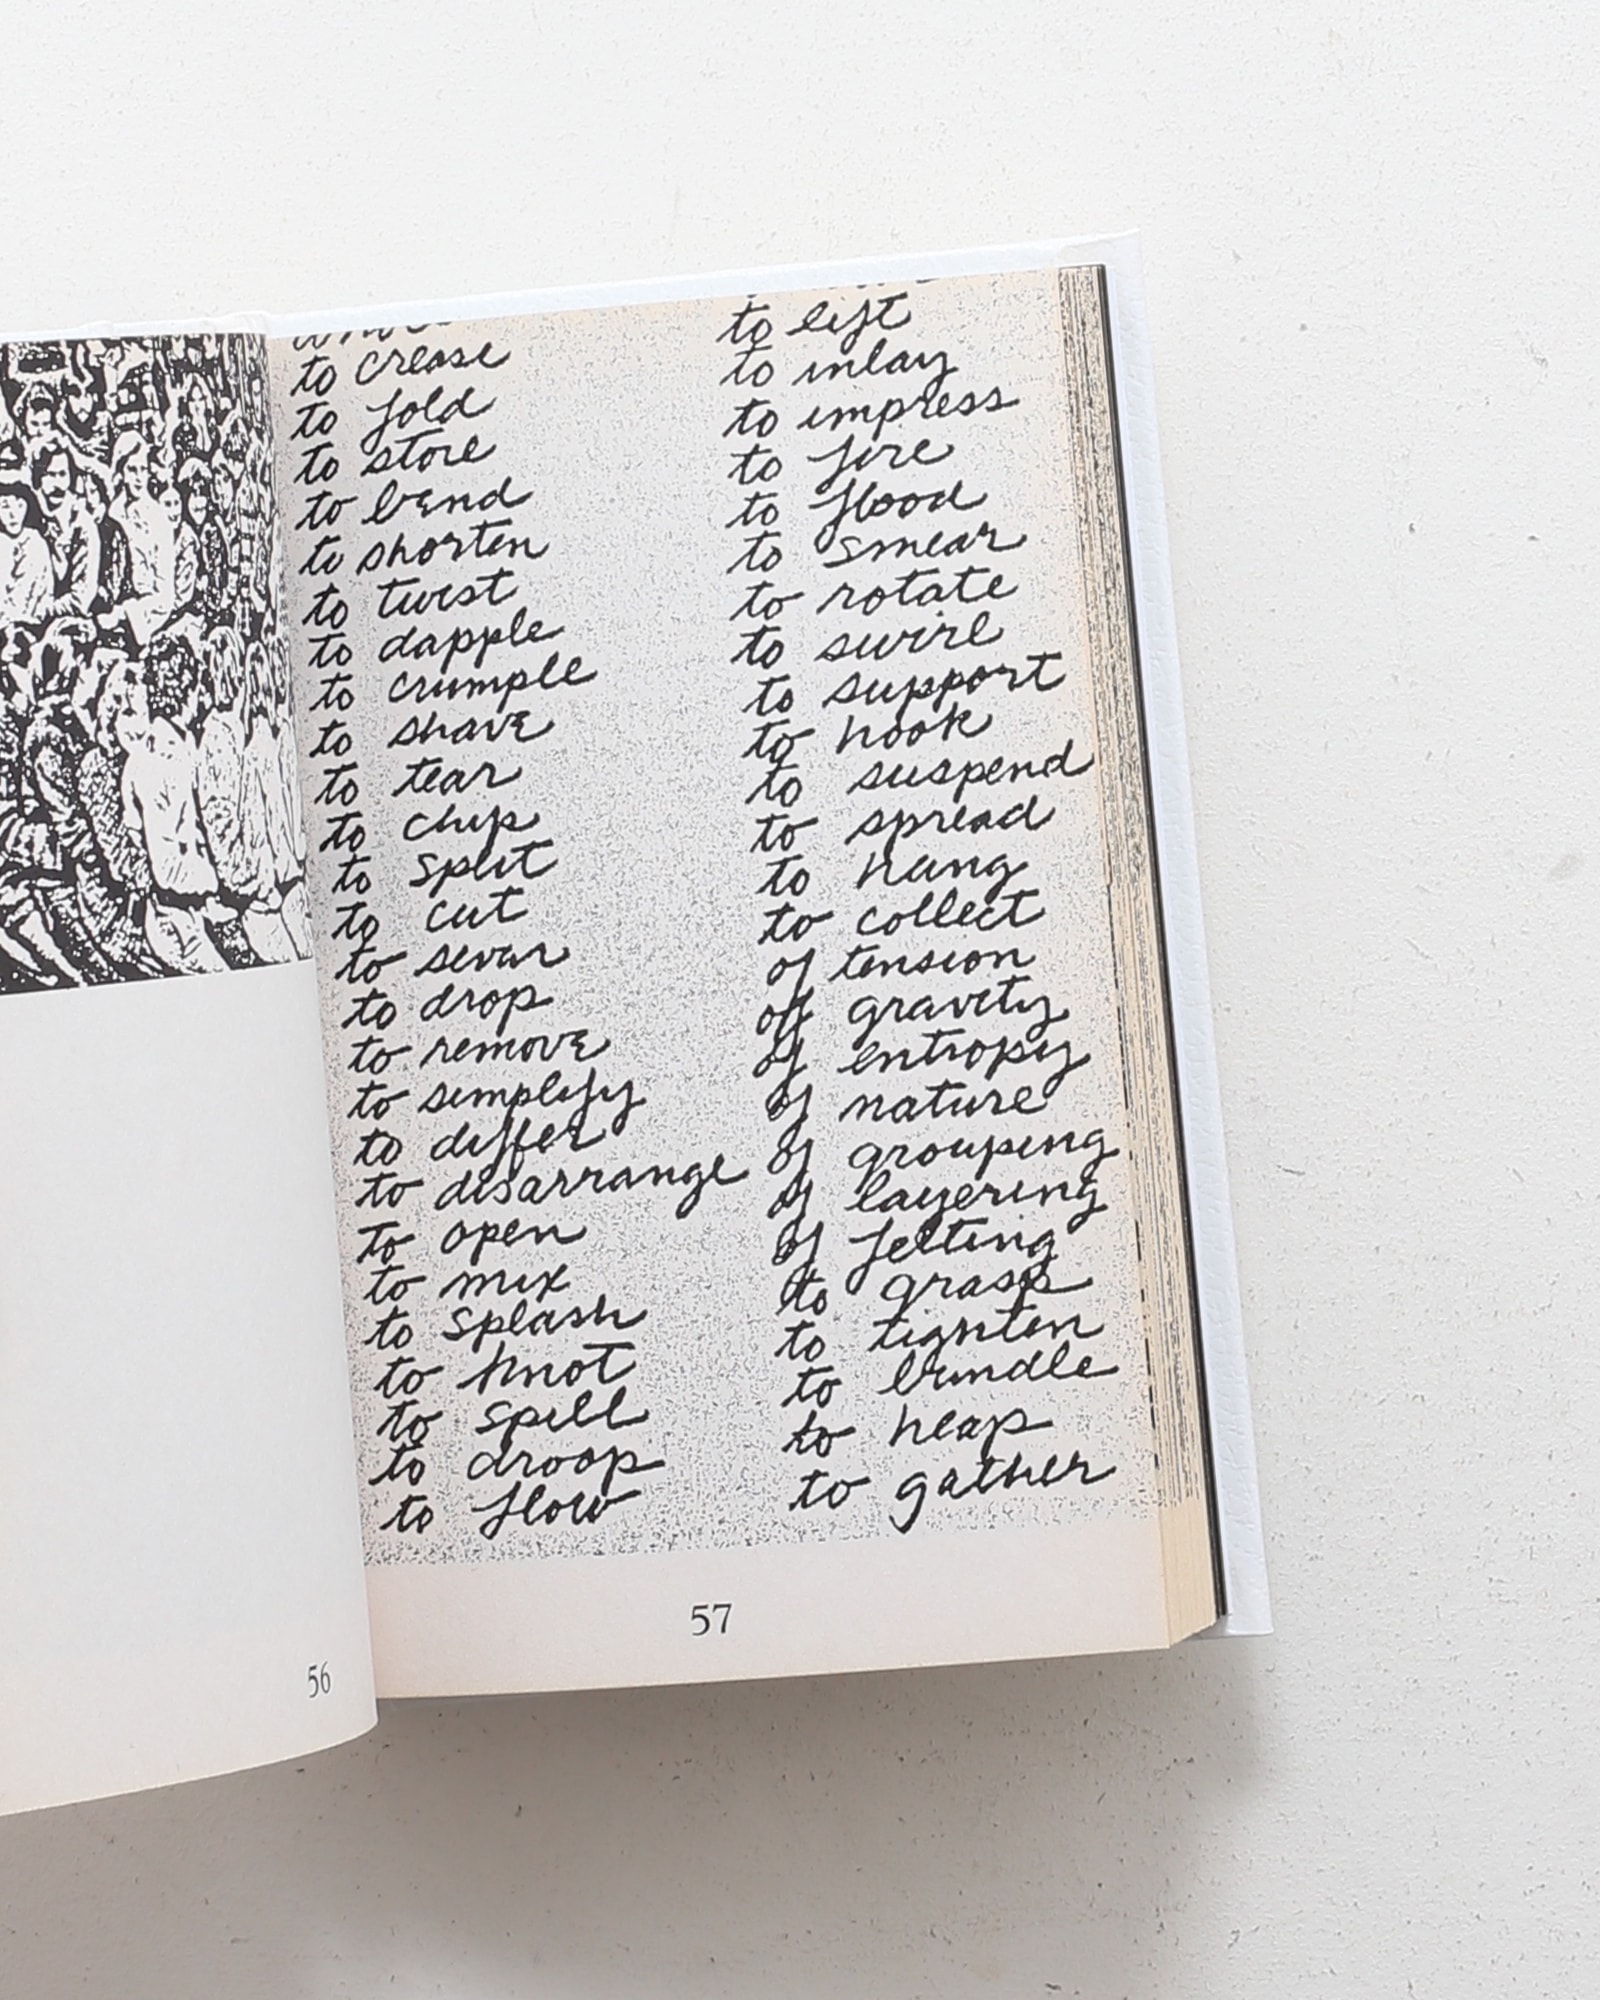 to crease
to fold
to store
to bend
to shorten
to twist
to dapple
to crumple
to shave
to tear
to chip
to split
to cut
to sever
to drop
to remove
to simplify
to differ
to disarrange
to open
to mix
to splash
to knot
to spill
to droop
to flow
to lift
to inlay
to impress
to fire
to flood
to smear
to rotate
to swirl
to support
to hook
to suspend
to spread
to hang
to collect
of tension
of gravity
of entropy
of nature
of grouping
of layering
of felting
to grasp
to tighten
to bundle
to heap
to gather
56
57